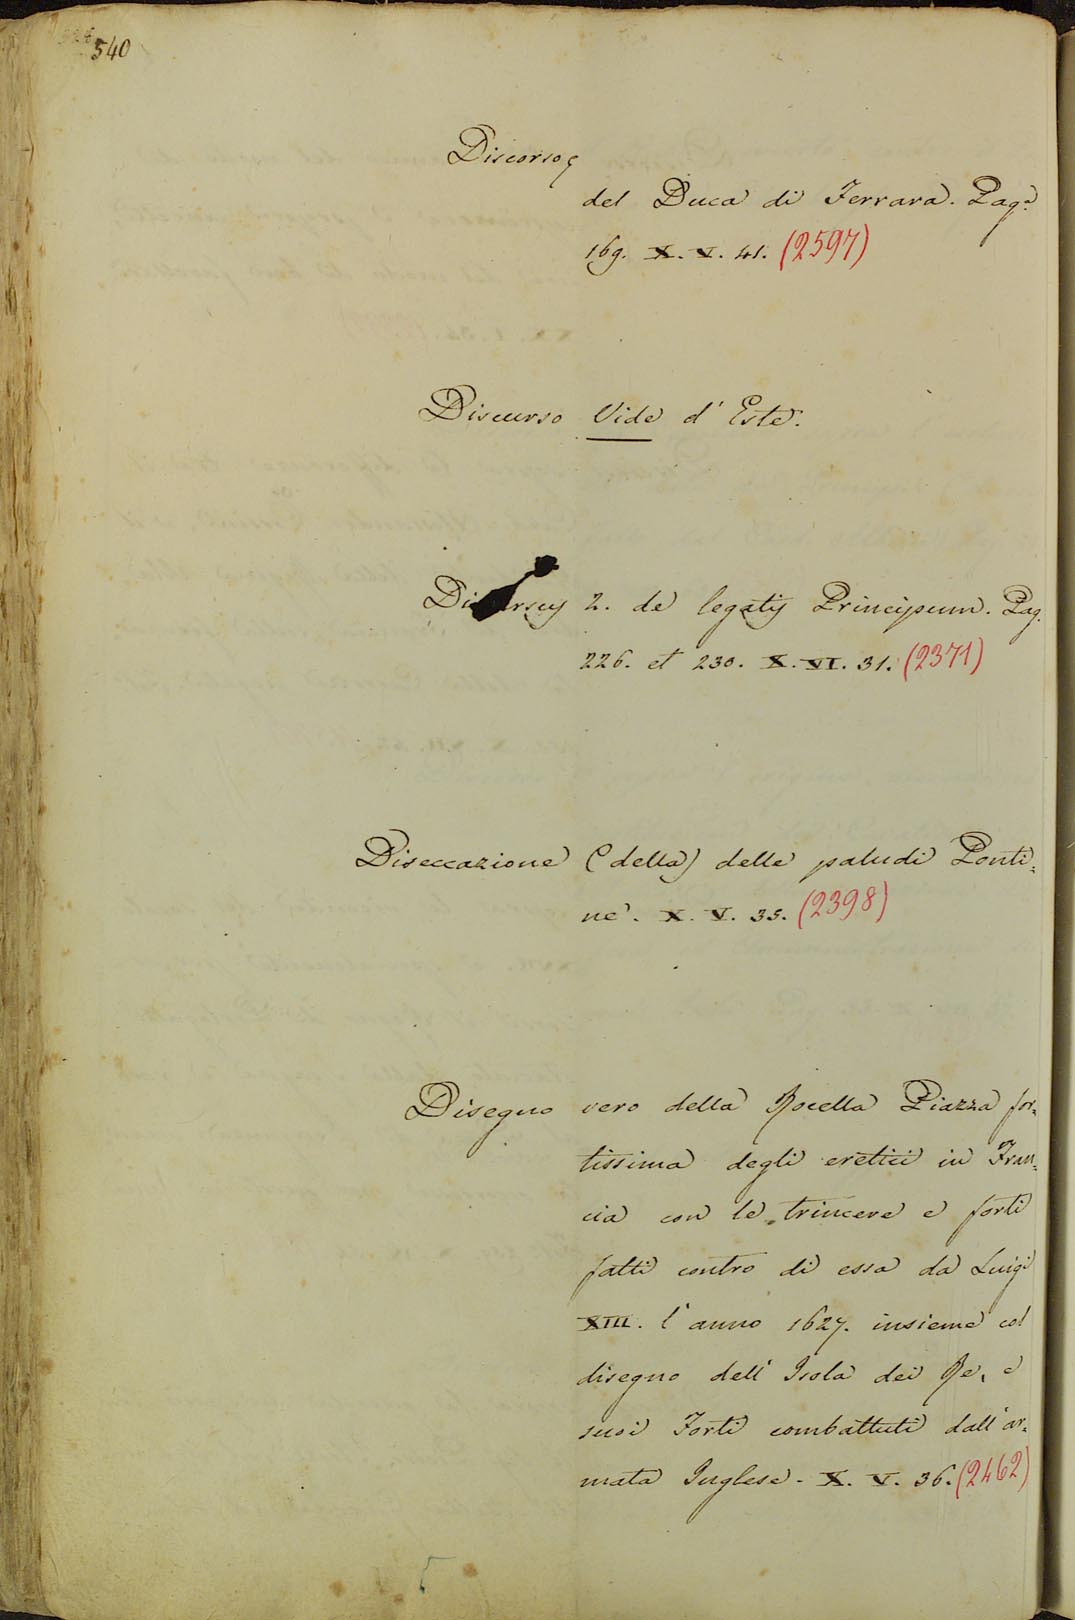 540
Discorso
del Duca di Ferrara. Pag.ª
169. X. V. 41. (2597)
Discurso Vide d'Este.
2. de legatis Principum. Pag.
226. et 230. X. VI. 31. (2371)
Diseccazione (della) delle paludi Ponti=
ne. X. V. 35. (2398)
Disegno vero della Rocella Piazza for=
tissima degli eretici in Fran=
cia con le trincere e forti
fatti contro di essa da Luigi
XIII. l'anno 1627. insieme col
disegno dell'Isola dei Re, e
suoi Forti combattuti dall'ar=
mata Inglese. X. V. 36. (2462)